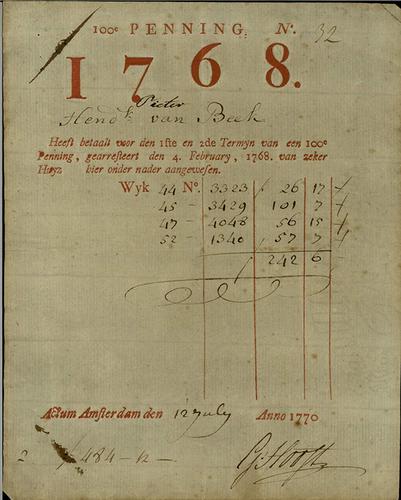 100e PENNING. No. 32
1768.
Pieter
Hendk van Beek
Heeft betaalt voor den 1ste en 2de Termyn van een 100e
Penning, gearresteert den 4. February, 1768. van zeker
Huyz hier onder nader aangewesen.
Wyk 44 No. 3323 26 17
45 - 3429 101 7
47 - 4048 56 15
52 - 1340 57 7
242 6
Actum Amsterdam den 12 July Anno 1770
2 484-12-
G: Hooft